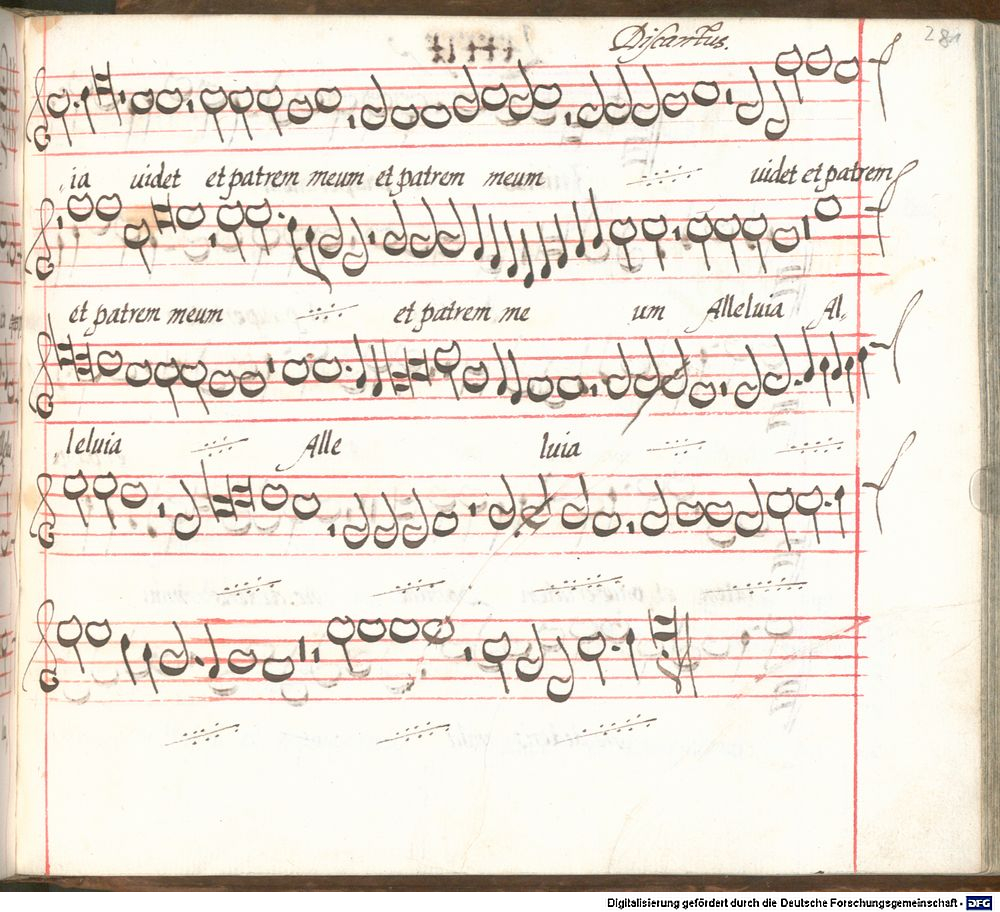 Discantus.
281
ia uidet et patrem meum et patrem meum uidet et patrem
et patrem meum et patrem me um Alleluia Al,
leluia Alle luia
Digitalisierung gefördert durch die Deutsche Forschungsgemeinschaft - DFG